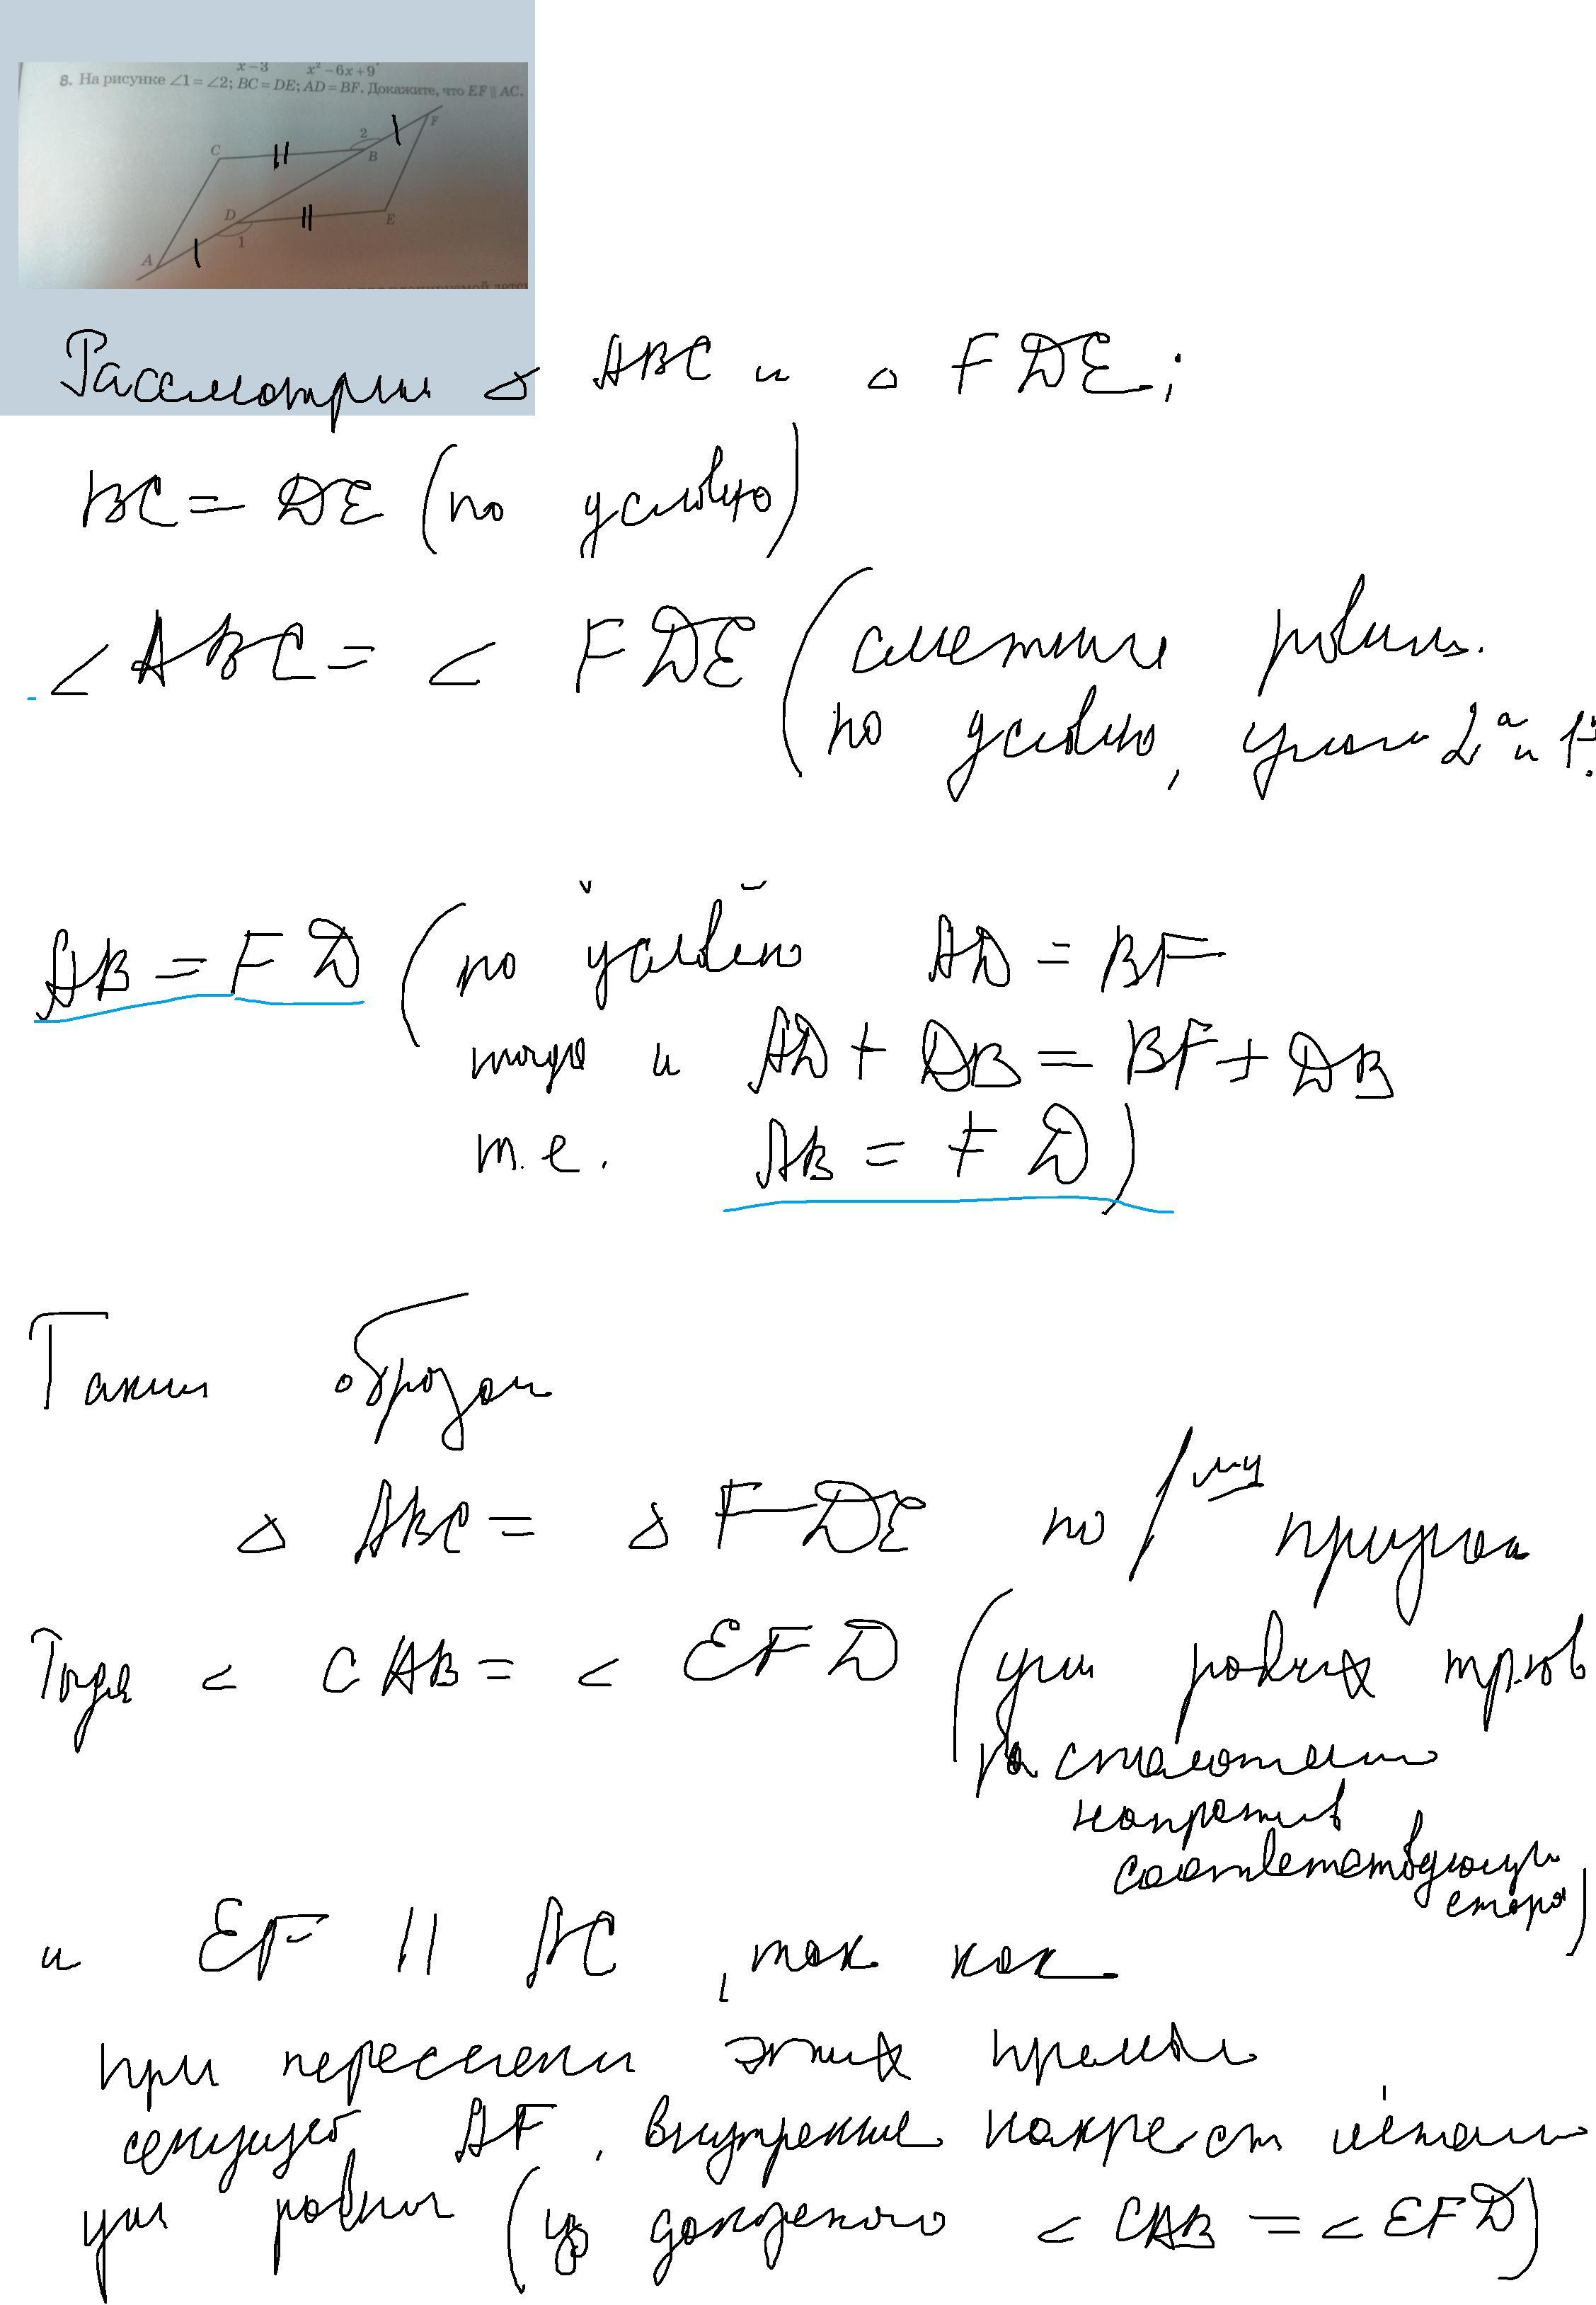 x−3 x²−6x+9
8. На рисунке ∠1 = ∠2; BC = DE; AD = BF. Докажите, что EF ∥ AC.
2
F
C
B
D
E
1
A
Рассмотрим △ ABC и △ FDE;
BC = DE (по условию)
∠ ABC = ∠ FDE (смежные
по условию, углам 2 и 1
AB = FD (по условию AD = BF
тогда и AD + DB = BF + DB
т.е. AB = FD)
Таким образом
△ ABC = △ FDE по 1му признак
Тогда ∠ CAB = ∠ EFD (угл равных тр-ов
напротив
соответствующи
сторо)
и EF || AC, так как
при пересечени этих прямы
секущей AF, внутрение накрест
угл равны (из доказеного ∠ CAB = ∠ EFD)